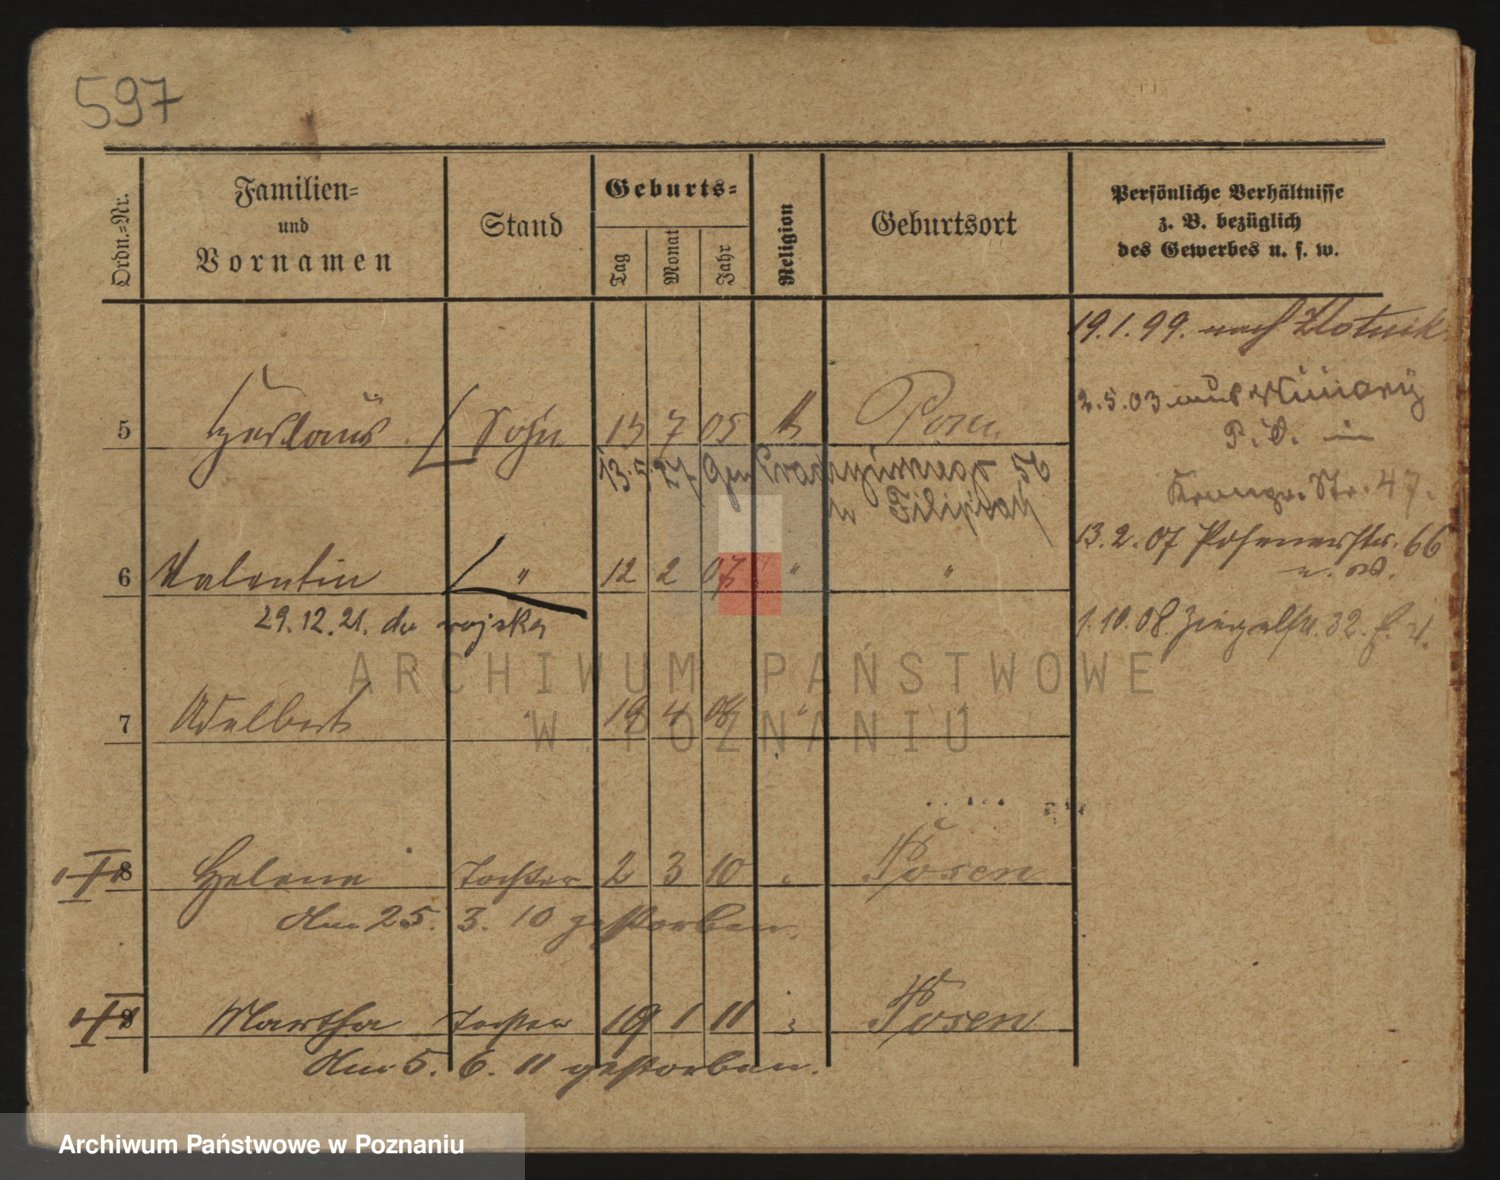 597
Ordn.-Nr.
Familien-
und
Vornamen
Stand
Geburts-
Tag
Monat
Jahr
Religion
Geburtsort
Persönliche Verhältnisse
z. B. bezüglich
des Gewerbes u. s. w.
19.1.99. nach Zlotnik
2.5.03 aus
Str. 47.
13.2.07 Posenerstr. 66
1.10.08. Ziegelstr. 32.
5 Sohn 7 05 Posen
13.5.27
6 Valentin " 12 2 07 " "
29.12.21. do wojska
7 Adelbert " 19 4 08 " "
8 Helene Tochter 2 3 10 " Posen
Am 25. 3. 10 gestorben.
9 Martha Tochter 19 1 11 " Posen
Am 5. 6. 11 gestorben.
ARCHIWUM PAŃSTWOWE
W POZNANIU
Archiwum Państwowe w Poznaniu